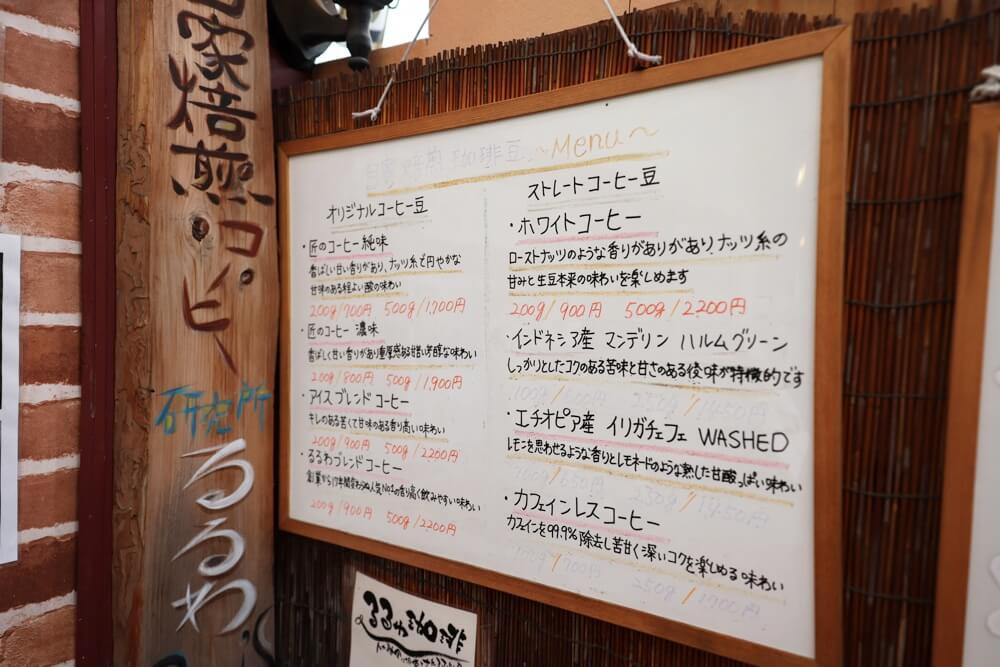 家焙煎コーヒー
研究所
るるわ
自家焙煎珈琲豆 ~Menu~
オリジナルコーヒー豆
・匠のコーヒー 純味
香ばしい甘い香りがあり、ナッツ系で円やかな
甘味のある程よい酸の味わい
200g/700円 500g/1,700円
・匠のコーヒー 濃味
香ばしく甘い香りがあり重厚感ある甘苦い芳醇な味わい
200g/800円 500g/1,900円
・アイスブレンドコーヒー
キレのある苦くて甘味のある香り高い味わい
200g/900円 500g/2200円
・るるわブレンドコーヒー
創業から17年間変わらぬ人気No.1の香り高く飲みやすい味わい
200g/900円 500g/2200円
ストレートコーヒー豆
・ホワイトコーヒー
ローストナッツのような香りがありがありナッツ糸の
甘みと生豆本来の味わいを楽しめます
200g/900円 500g/2200円
・インドネシア産 マンデリン ハルムグリーン
しっかりとしたコクのある苦味と甘さのある後味が特徴的です
・エチオピア産 イリガチェフェ WASHED
レモンを思わせるような香りとレモネードのような熟した甘酸っぱい味わい
100g/650円 250g/1,450円
・カフェインレスコーヒー
カフェインを99.9%除去し苦甘く深いコクを楽しめる味わい
100g/700円 250g/1700円
るるわ珈琲